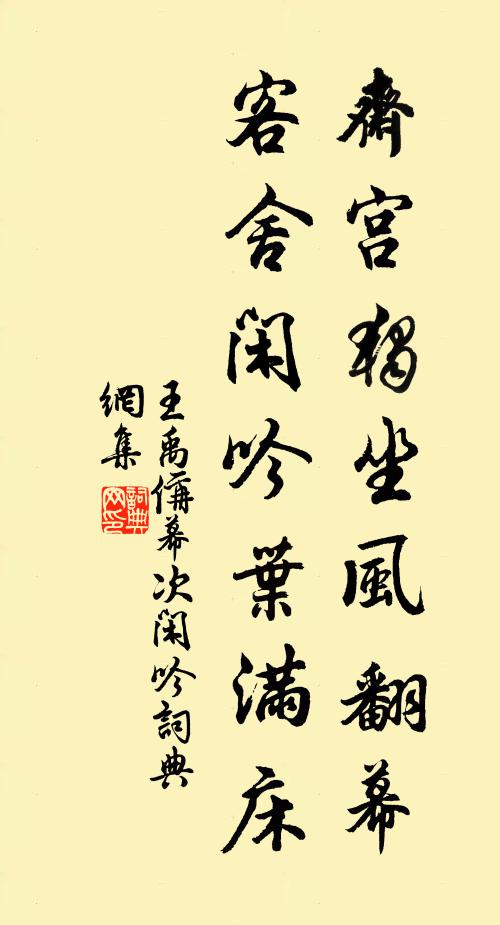 齋宮獨坐風翻幕
客舍閑吟葉滿床
王禹偁幕次閑吟詞典
網集
詞典
网印